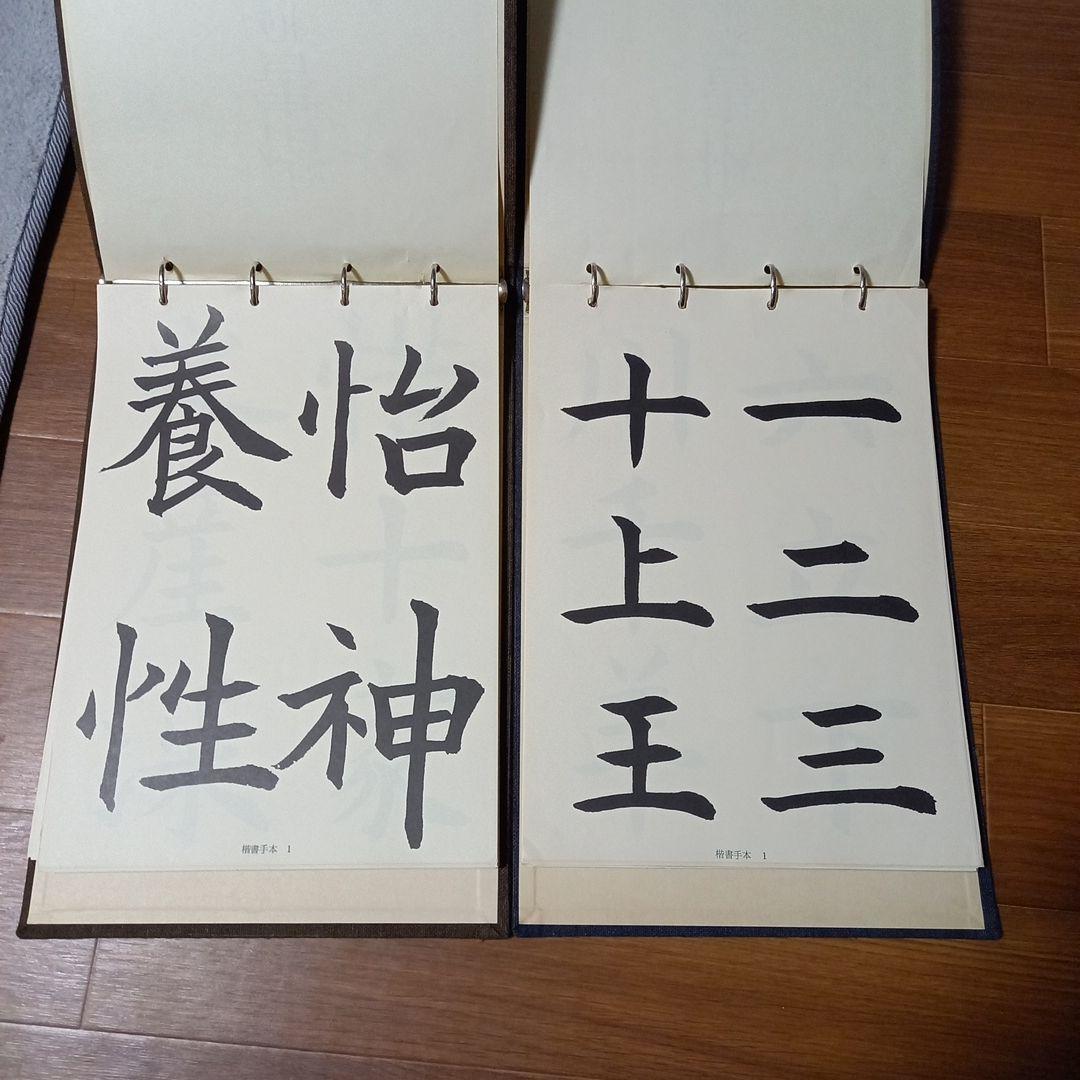 怡神
養性
楷書手本 1
一二三
十上王
楷書手本 1